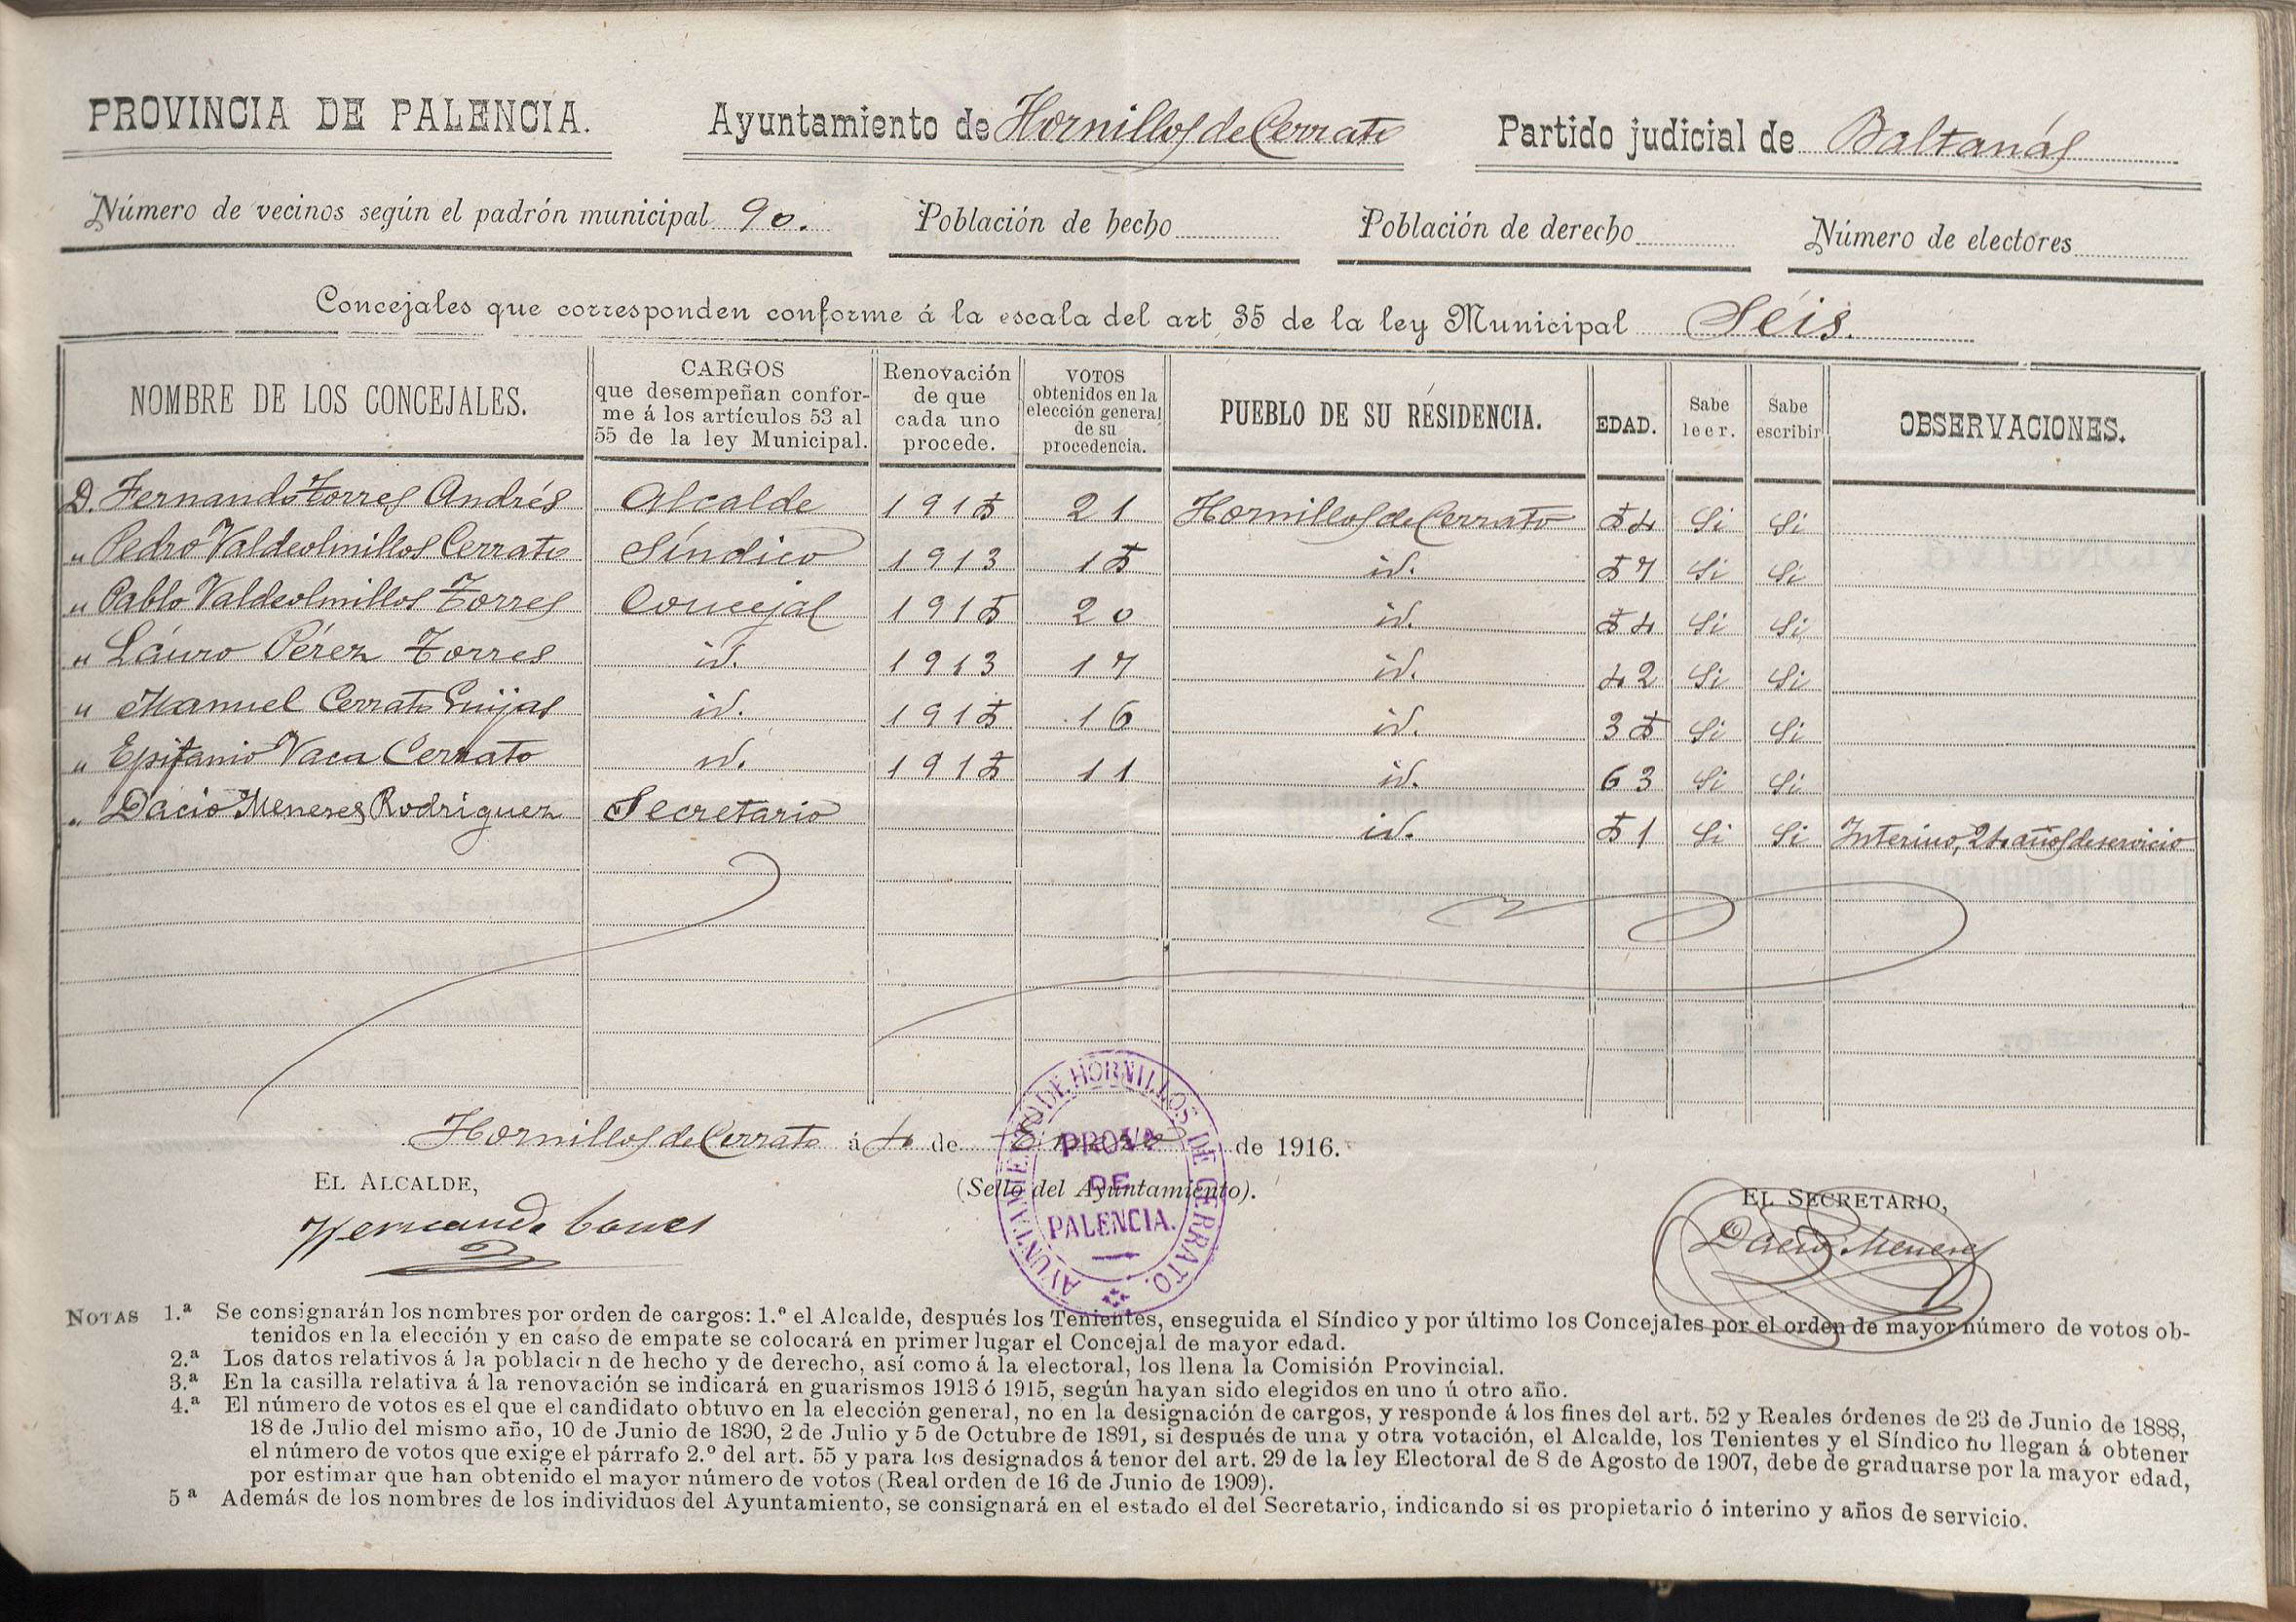 PROVINCIA DE PALENCIA. Ayuntamiento de Hornillos de Cerrato Partido judicial de Baltanás
Número de vecinos según el padrón municipal 90. Población de hecho Población de derecho Número de electores
Concejales que corresponden conforme á la escala del art 35 de la ley Municipal Séis.
NOMBRE DE LOS CONCEJALES. CARGOS que desempeñan confor- me á los artículos 53 al 55 de la ley Municipal. Renovación de que cada uno procede. VOTOS obtenidos en la elección general de su procedencia. PUEBLO DE SU RESIDENCIA. EDAD. Sabe leer. Sabe escribir OBSERVACIONES.
D. Fernando Torres Andrés Alcalde 1915 21 Hornillos de Cerrato 54 Si Si
" Pedro Valdeolmillos Cerrato Síndico 1913 15 id. 57 Si Si
" Pablo Valdeolmillos Torres Concejal 1915 20 id. 54 Si Si
" Láuro Pérez Torres id. 1913 17 id. 42 Si Si
" Manuel Cerrato Guijas id. 1915 16 id. 35 Si Si
" Epifanio Vaca Cerrato id. 1915 11 id. 63 Si Si
" Dacio Meneses Rodriguez Secretario id. 51 Si Si Interino, 24 años de servicio
Hornillos de Cerrato á 4 de Enero de 1916.
EL ALCALDE, (Sello del Ayuntamiento). EL SECRETARIO,
Fernando Torres Dacio Meneses
AYUNTAMIENTO DE HORNILLOS DE CERRATO.
PROVA
DE
PALENCIA.
NOTAS 1.ª Se consignarán los nombres por orden de cargos: 1.º el Alcalde, después los Tenientes, enseguida el Síndico y por último los Concejales por el orden de mayor número de votos ob-
tenidos en la elección y en caso de empate se colocará en primer lugar el Concejal de mayor edad.
2.ª Los datos relativos á la población de hecho y de derecho, así como á la electoral, los llena la Comisión Provincial.
3.ª En la casilla relativa á la renovación se indicará en guarismos 1913 ó 1915, según hayan sido elegidos en uno ú otro año.
4.ª El número de votos es el que el candidato obtuvo en la elección general, no en la designación de cargos, y responde á los fines del art. 52 y Reales órdenes de 23 de Junio de 1888,
18 de Julio del mismo año, 10 de Junio de 1890, 2 de Julio y 5 de Octubre de 1891, si después de una y otra votación, el Alcalde, los Tenientes y el Síndico no llegan á obtener
el número de votos que exige el párrafo 2.º del art. 55 y para los designados á tenor del art. 29 de la ley Electoral de 8 de Agosto de 1907, debe de graduarse por la mayor edad,
por estimar que han obtenido el mayor número de votos (Real orden de 16 de Junio de 1909).
5ª Además de los nombres de los individuos del Ayuntamiento, se consignará en el estado el del Secretario, indicando si es propietario ó interino y años de servicio.